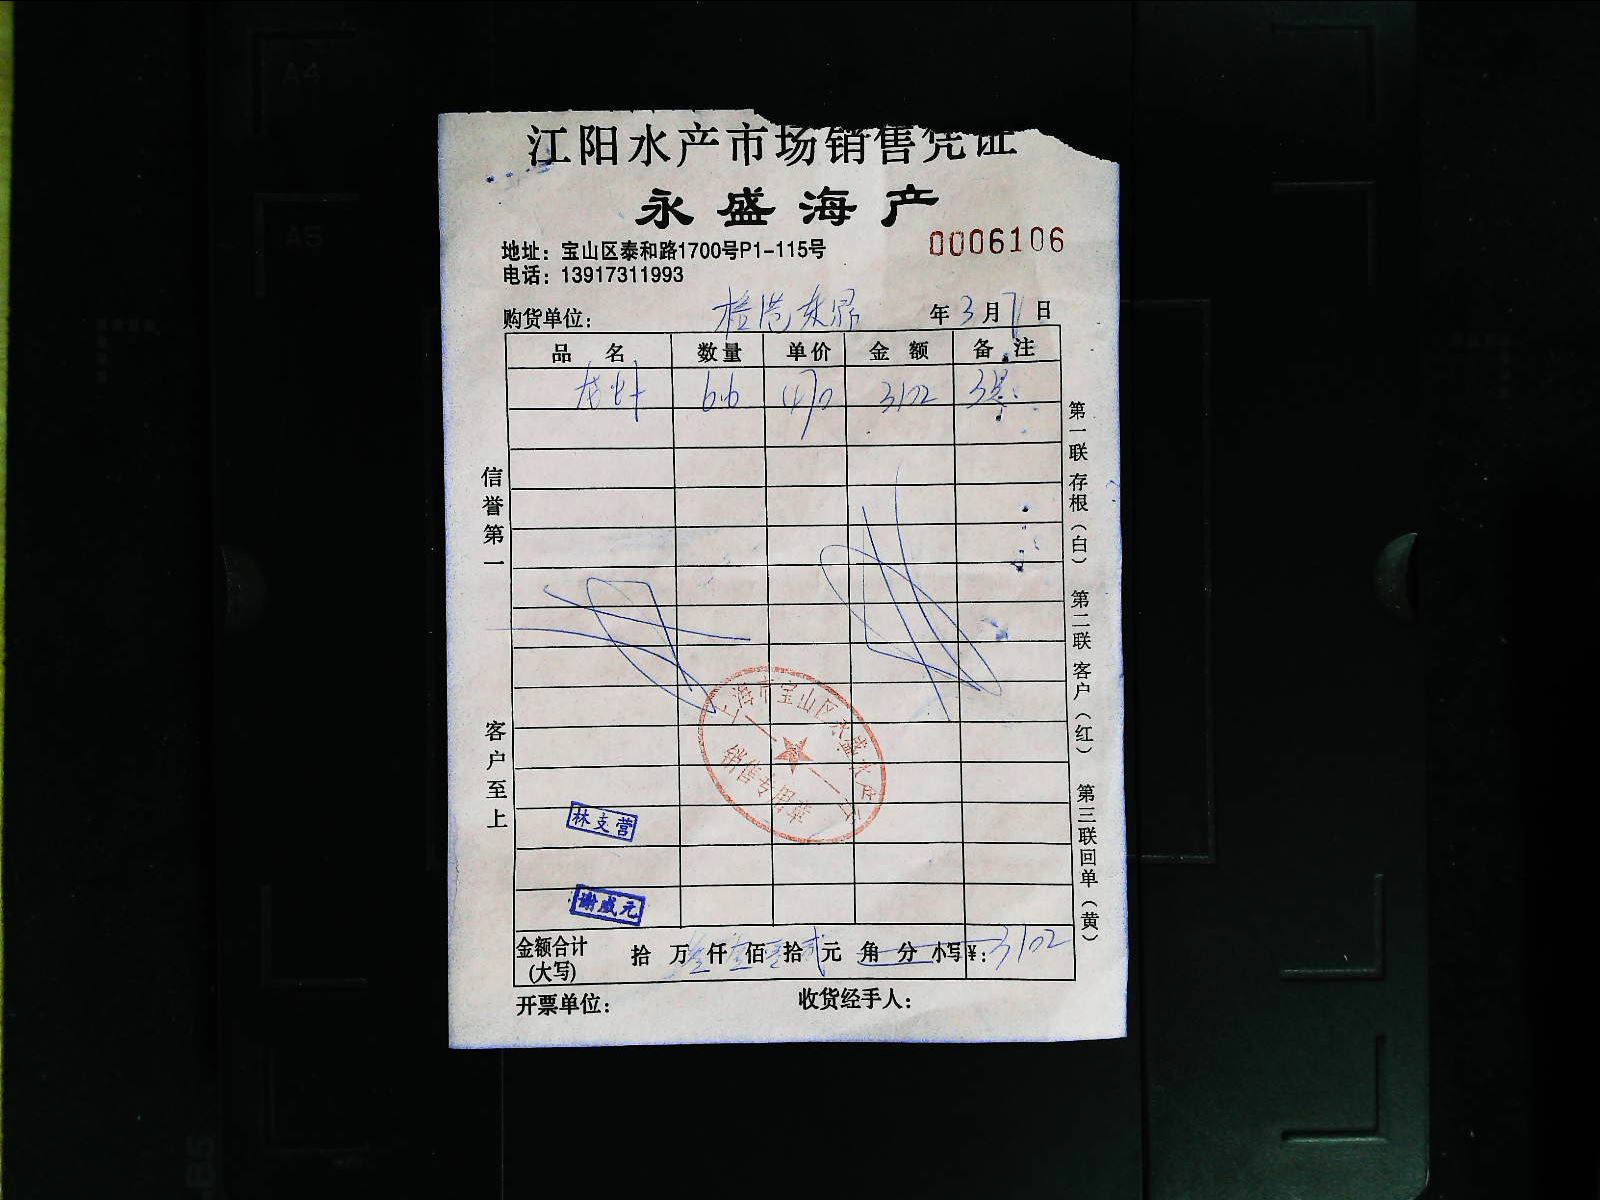 江阳水产市场销售凭证
永盛海产
0006106
地址：宝山区泰和路1700号P1-115号
电话：13917311993
购货单位： 年3月7日
品 名 数量 单价 金额 备注
龙虾 6.6 470 3102
信誉第一
客户至上
第一联 存根（白） 第二联 客户（红） 第三联 回单（黄）
上海市宝山区永盛水产
销售专用章
林支营
谢成元
金额合计（大写） 拾 万叁仟壹佰零拾贰元 角 分 小写¥：3102
开票单位： 收货经手人：
A4
A5
B5